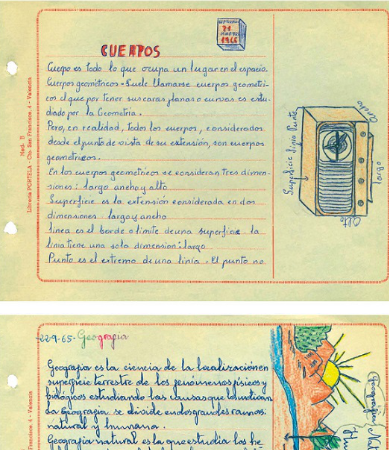 CUERPOS
Cuerpo es todo lo que ocupa un lugar en el espacio
Cuerpos geométricos - Suele llamarse cuerpos geométri-
cos al que por tener sus caras planas o curvas es estu-
diado por la Geometria.
Pero, en realidad, todos los cuerpos, considerados
desde el punto de vista de su extensión, son cuerpos
geométricos.
En los cuerpos geometricos se consideran tres dimen-
siones: largo, ancho y alto
Superficie es la extensión considerada en dos
dimensiones. largo y ancho
linea es el borde o limite de una superficie la
linea tiene una sola dimensión: largo.
Punto es el extremo de una linia. El punto no
Superficie linia Punto
Ancho
largo
Alto
Mod. 5
Librería PORTELA - Cllo. San Francisco, 4 - Valencia
22-9-65- Geografia
Geografia es la ciencia de la localización en
superficie terrestre de los fenómenos físicos y
biológicos estudiando las causas que
la Geografia se divide en dos grandes ramas
natural y humana.
Geografia natural es la que estudia los he
Geografia